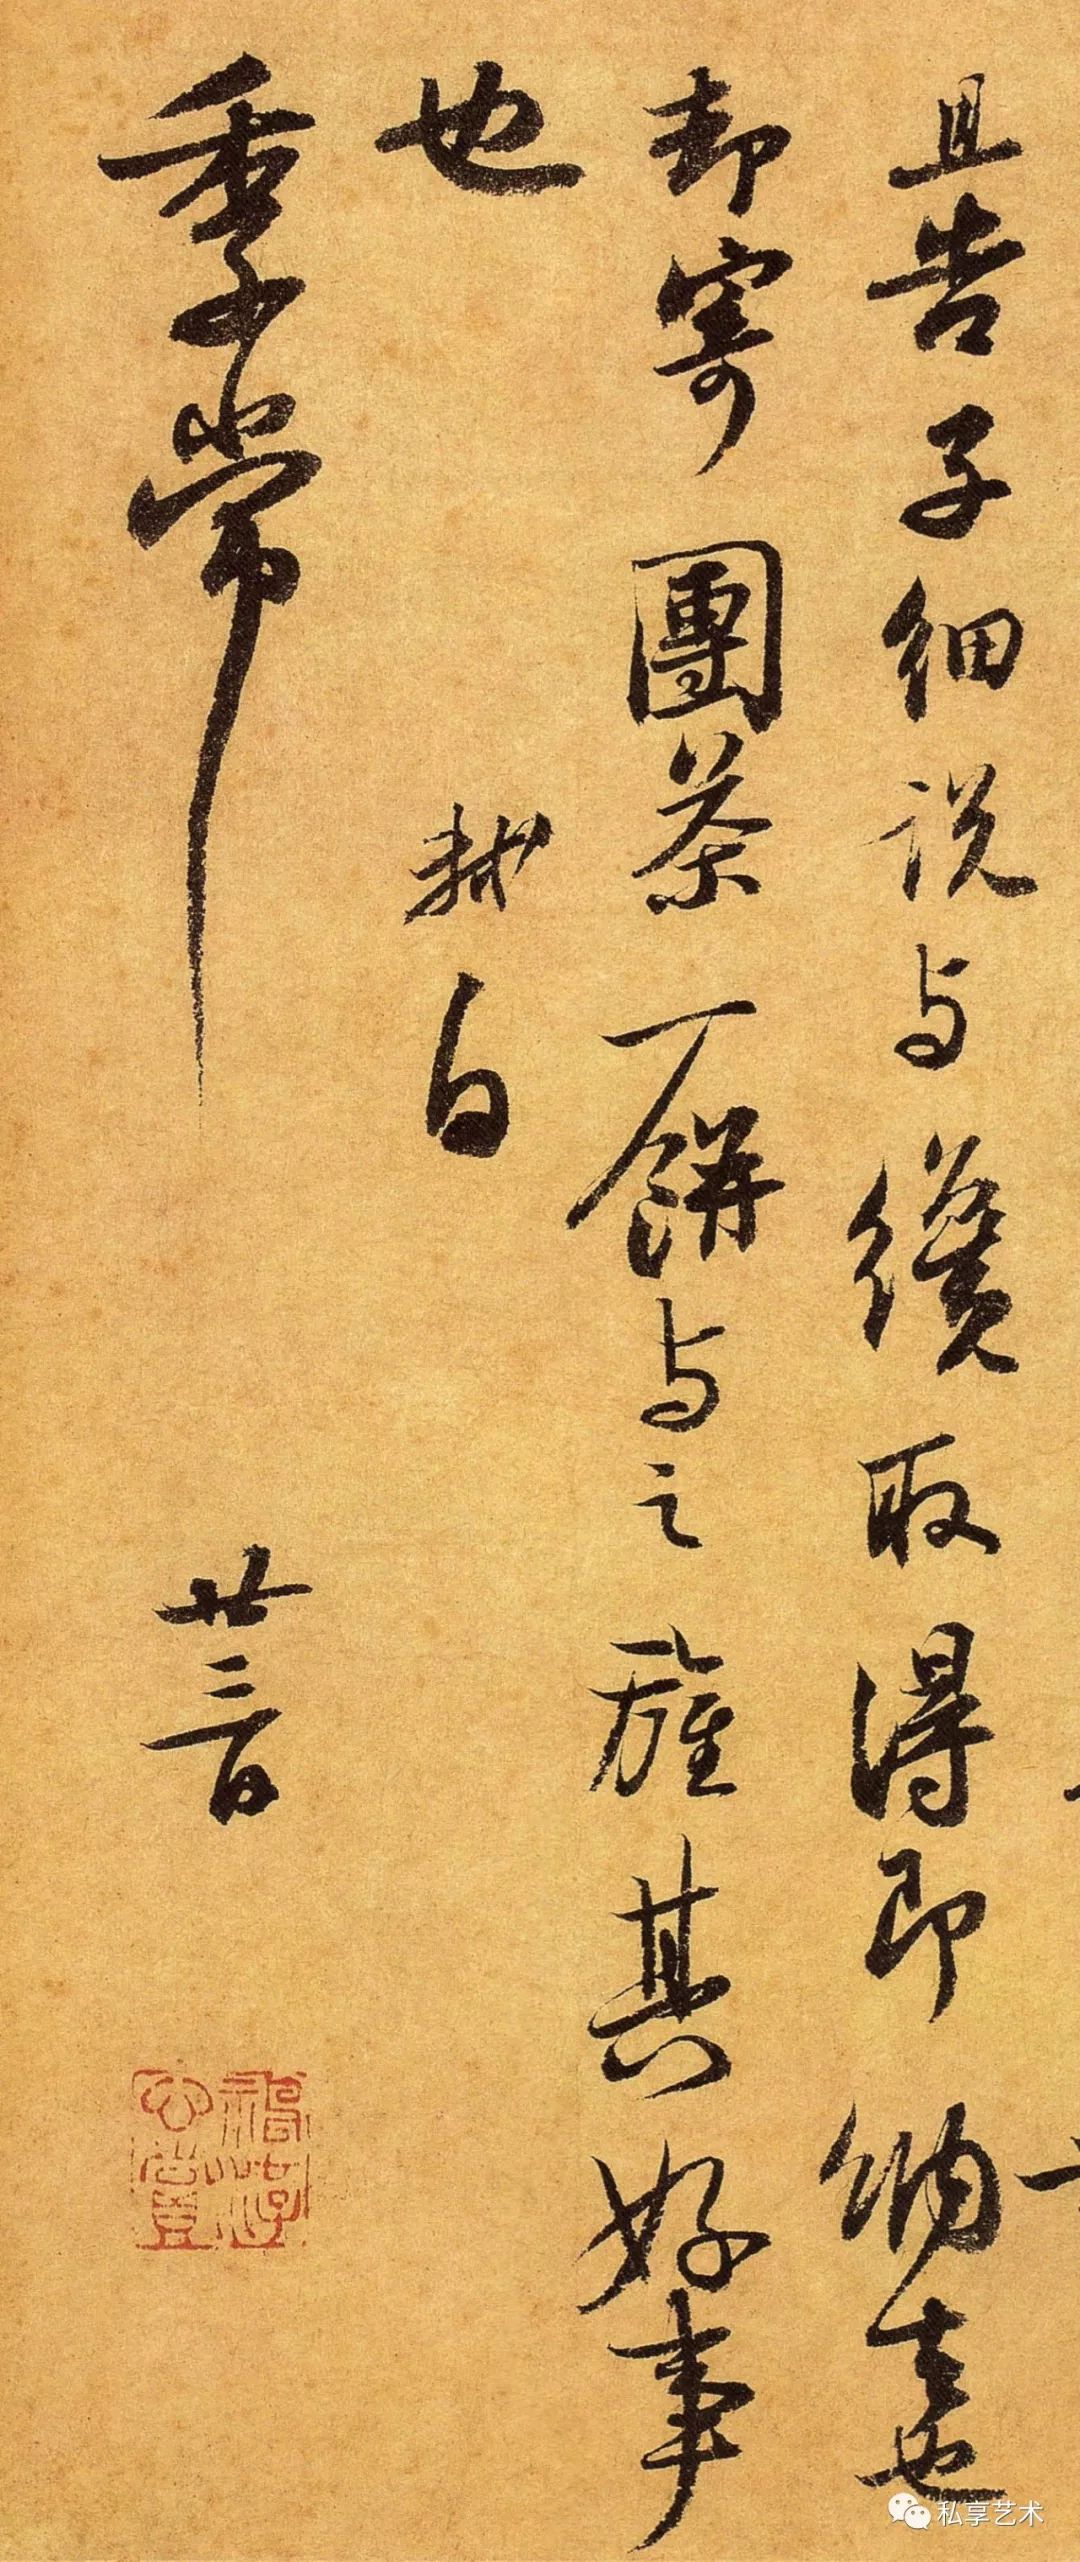 且告子細説與纔取得即納去也
却寄團茶一餅與之旌其好事
也 軾白
季常 廿三日
私享艺术